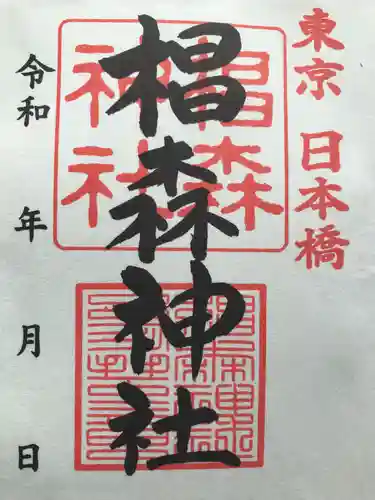 東京 日本橋
椙森神社
椙森
神社
令和 年 月 日